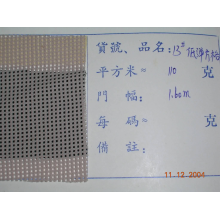 貨號、品名:13#低彈方格
平方米= 110 克
門 幅: 1.60m
每 碼= 克
備 註:
11-12 2004